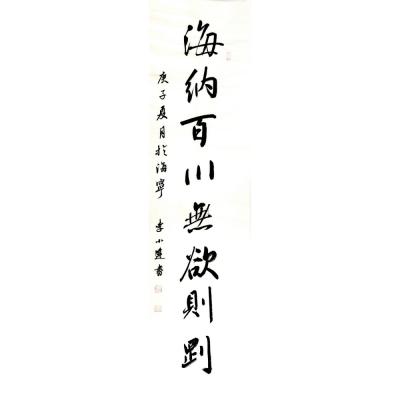 海納百川無欲則剛
庚子夏月於海寧 李小書